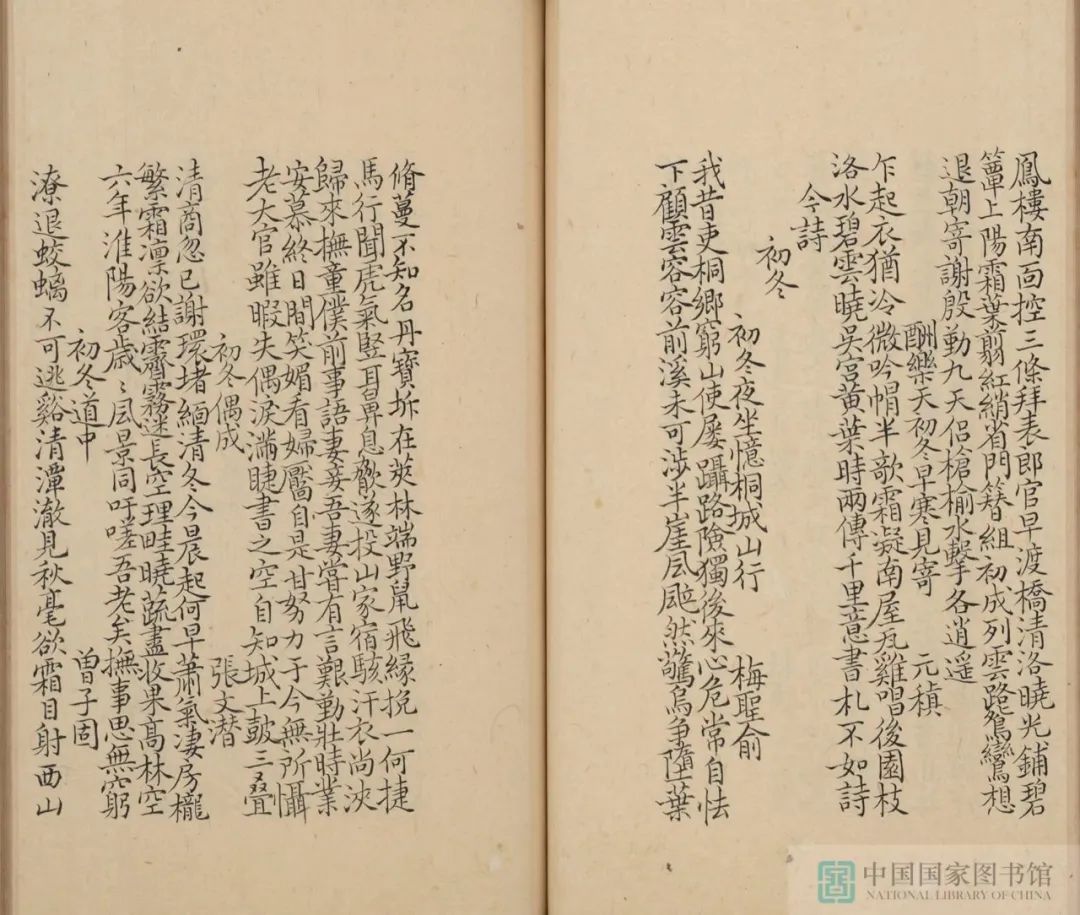 鳳樓南面控三條拜表郎官早渡橋清洛曉光鋪碧
簟上陽霜葉剪紅綃省門簪組初成列雲路鴛鸞想
退朝寄謝殷勤九天侶槍榆水擊各逍遥
酬樂天初冬早寒見寄 元稹
乍起衣猶冷微吟帽半欹霜凝南屋瓦雞唱後園枝
洛水碧雲曉吳宮黃葉時兩傳千里意書札不如詩
今詩
初冬
初冬夜坐憶桐城山行 梅聖俞
我昔吏桐鄉窮山使屡躡路險獨後來心危常自怯
下顧雲容容前溪未可涉半崖風颭然驚鳥争墮葉
脩蔓不知名丹實坼在莢林端野鼠飛緣挽一何捷
馬行聞虎氣竪耳鼻息歙遂投山家宿駭汗衣尚浹
歸來撫童僕前事語妻妾吾妻嘗有言艱勤壯時業
安慕終日閒笑媚看婦靨自是甘努力于今無所懾
老大官雖暇失偶淚滿睫書之空自知城上皷三疊
初冬偶成 張文潛
清商忽已謝環堵緬清冬今晨起何早蕭氣凄房櫳
繁霜凛欲結霽霧迷長空理畦曉蔬盡收果高林空
六年淮陽客歲〻風景同吁嗟吾老矣撫事思無窮
初冬道中 曾子固
潦退蛟螭不可逃谿清潭澈見秋毫欲霜日射西山
中国国家图书馆
NATIONAL LIBRARY OF CHINA